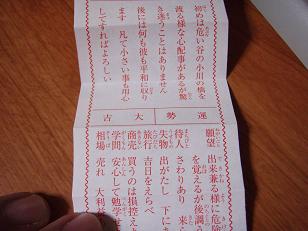 初めは危い谷の小川の橋を
渡る様な心配事があるが驚
き迷うことはありません
後には何も彼も平和に取り
ます 凡て小さい事も用心
してすればよろしい
運勢 大吉
願望 出来兼る様に危険
を覚えるが後調
待人 さわりあり 来
失物 出がたし 下に
旅行 吉日をえらべ
商売 買うのは損控え
学問 安心して勉学せ
相場 売れ 大利益